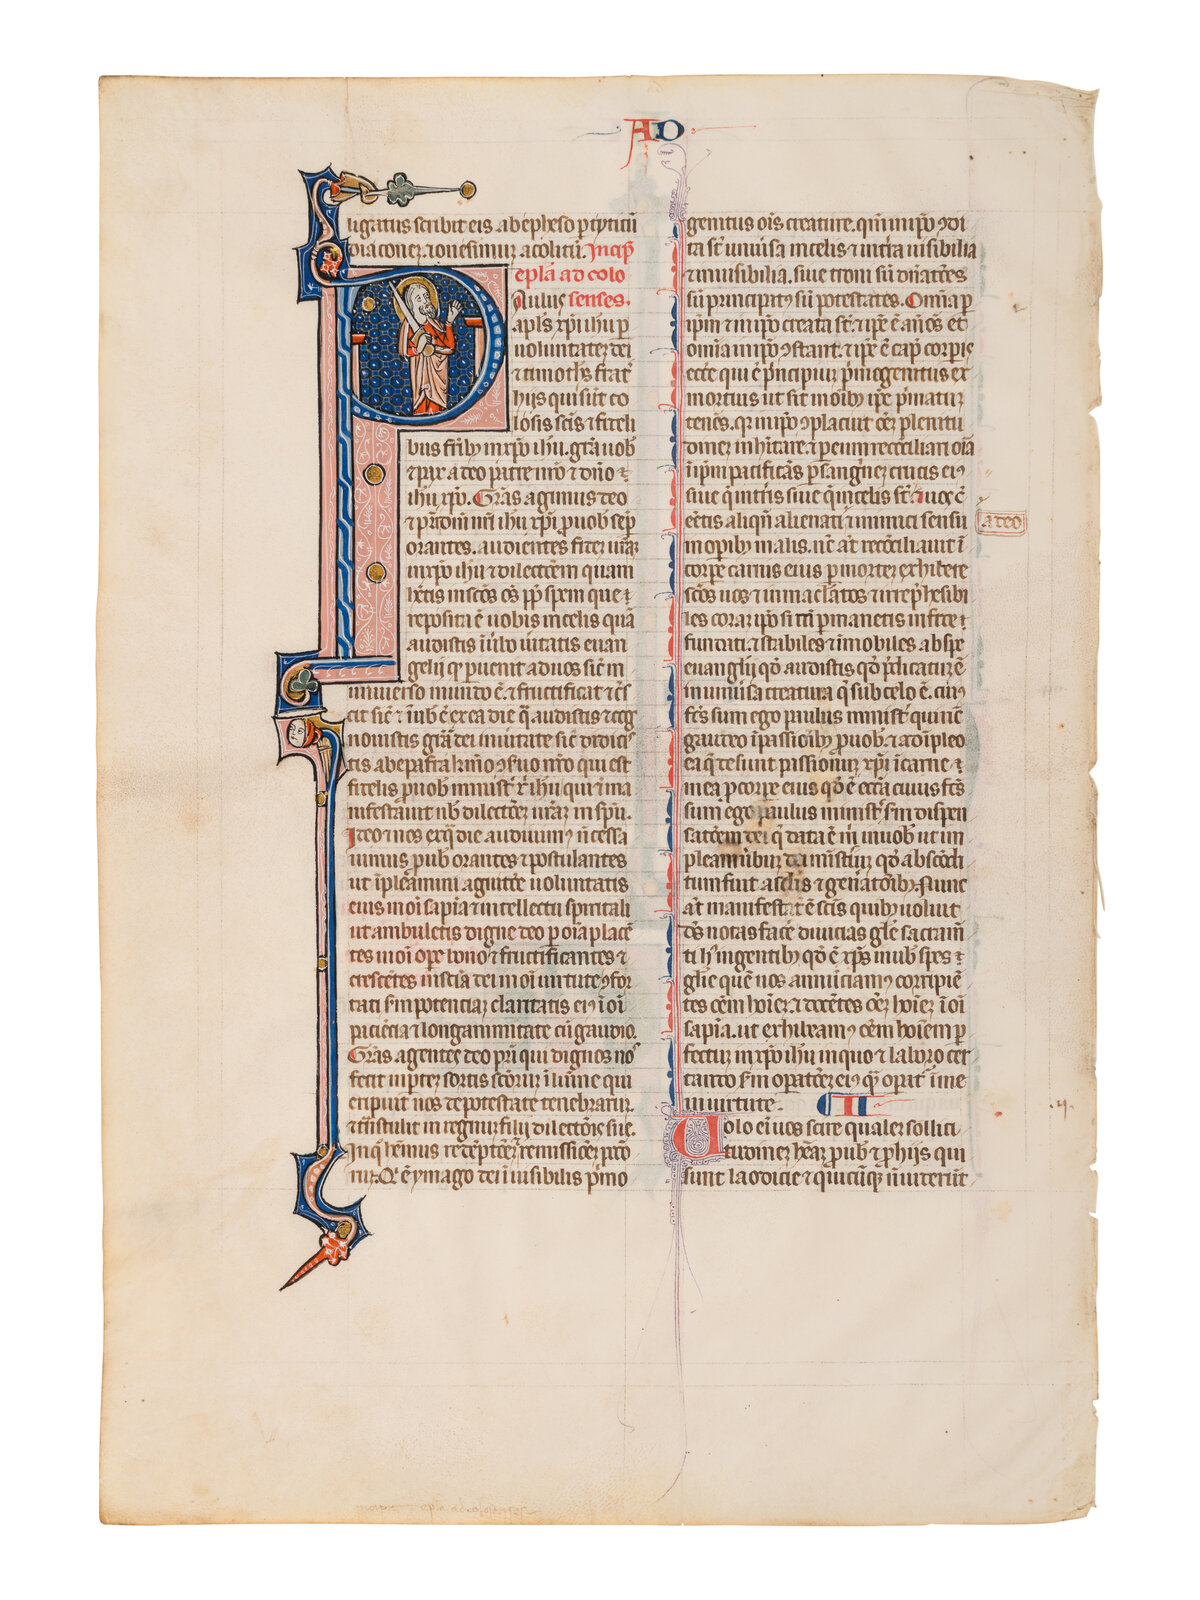 AD
ligatus scribit eis ab epheso p tyticū
diaconeʒ ⁊ onesimuʒ acolitū. Incip̄
ep̄la ad colo
Aulus senses.
apl̄s xp̄i ihū p
uoluntateʒ dei
⁊ timoth̄s frat̄
hijs qui sūt co
losis sc̄is ⁊ fideli
bus fr̄ib᷒ in xp̄o ihū. gr̄a uob̄
⁊ pax a deo patre nr̄o ⁊ dn̄o
ihū xp̄o. Gr̄as agimus deo
⁊ pr̄i dn̄i nr̄i ihū xp̄i p uob̄ semp̄
orantes. audientes fideʒ ur̄aʒ
in xp̄o ihū ⁊ dilectōem quam
h̄etis in sc̄os os̄ pp̄ spem que
reposita ē uobis in celis quā
audistis ī ūbo ūitatis euan
gelij q̄ puenit ad uos sic̄ ⁊ in
uniuerso mundo ē. ⁊ fructificat ⁊ cr̄s
cit sic̄ ⁊ ī uob̄ ē ex ea die qͣ audistis ⁊ cog
nouistis gr̄aʒ dei in ūitate sic̄ didicis
tis ab epafra kr̄imo ꝯseruo nr̄o qui est
fidelis p uob̄ minist̄ xp̄i ihū qui ⁊ ma
nifestauit nob̄ dilectōeʒ ur̄aʒ in sp̄u.
Ideo ⁊ nos ex qͣ die audiuim᷒ n̄ cessa
uimus p uob̄ orantes ⁊ postulantes
ut īpleamini agnitōe uoluntatis
eius in oī sapīa ⁊ intellectu spiritali
ut ambuletis digne deo p oīa placē
tes in oī ope bono ⁊ fructificantes ⁊
crescētes in scīa dei in oī uirtute ꝯfor
tati sm̄ potenciaʒ claritatis ei᷒ ī oī
paciēcia ⁊ longanimitate cū gaudio.
Gr̄as agentes deo pr̄i qui dignos nos
fecit in pteʒ sortis sc̄oruʒ ī lumīe qui
eripuit nos de potestate tenebraruʒ
⁊ trāstulit in regnuʒ filij dilectōnis sue.
In quo hēmus redēptōeʒ remissiōeʒ pccō
ruʒ. Qͥ ē ymago dei īuisibilis pͥmo
genitus oīs creature. qm̄ in ip̄o ꝯdi
ta st̄ uniūsa in celis ⁊ in t̄ra uisibilia
⁊ inuisibilia. siue troni siū dn̄atōes
siū principat᷒ siū potestates. Omīa p
ip̄m ⁊ in ip̄o creata st̄. ⁊ ip̄e ē an̄ os̄ et
omīa in ip̄o ꝯstant. ⁊ ip̄e ē cap̄ corpis
ecc̄e qui ē pͥncipiuʒ pͥmogenitus ex
mortuis ut sit in oīb᷒ ip̄e pͥmatuʒ
tenēs. qꝛ in ip̄o ꝯplacuit oēʒ plenitu
dineʒ inhītare. ⁊ p eum reconciliari oīa
ī ip̄m pacificās p sanguīeʒ crucis ei᷒
siue q̄ in t̄ris siue q̄ in celis st̄. Et uos cū
eēetis aliqn̄ alienati ⁊ inimici sensu
a deo
in opib᷒ malis. nūc at̄ reconciliauit ī
corpe carnis eius p morteʒ exhibere
sc̄os uos ⁊ inmaclatos ⁊ irrep̄hesibi
les coraʒ ip̄o si tn̄ pmanetis in fide
fundati. ⁊ stabiles ⁊ inmobiles ab spe
euangelij qd̄ audistis qd̄ p̄dicatuʒ ē
in uniūsa creatura q̄ sub celo ē. cui᷒
fc̄s sum ego paulus minist̄ qui nūc
gaudeo ī passioīb᷒ p uob̄. ⁊ adīpleo
ea q̄ desunt passionuʒ xp̄i ī carne
mea p corpe eius qd̄ ē ecc̄a cuius fc̄s
sum ego paulus minist̄ sm̄ dispen
satōem dei q̄ data ē m̄ in uob̄ ut im
pleam ūbuʒ dei misteriuʒ qd̄ abscōdi
tum fuit a sclis ⁊ gen̄atōib᷒. Nunc
at̄ manifestatuʒ ē sc̄is quib᷒ uoluit
ds̄ notas face diuicias gl̄e sacram̄
ti h᷒ in gentib᷒ qd̄ ē xp̄s in uob̄ spes
glīe queʒ nos annūciam᷒ corripiē
tes oēm hoīeʒ. ⁊ docētes oēʒ hoīeʒ ī oī
sapīa. ut exhibeam᷒ oēm hoīem p
fectuʒ in xp̄o ihū in quo ⁊ laboro cer
tando sm̄ opatōeʒ ei᷒ qͣʒ opat̄ ī me
in uirtute. II
Uolo eī uos scire qualeʒ sollici
tudineʒ heāʒ p uob̄ ⁊ p hijs qui
sunt laodicie ⁊ quicūqꝫ n̄ uiderūt